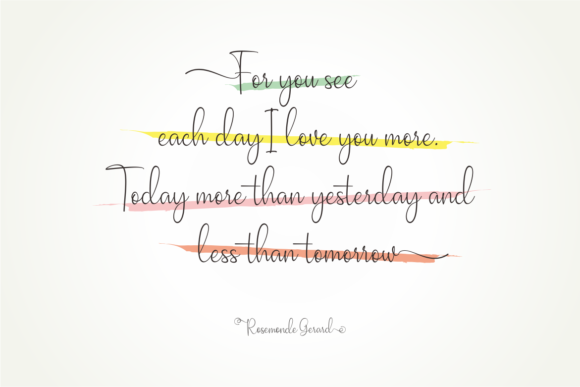 For you see
each day I love you more.
Today more than yesterday and
less than tomorrow
Rosemonde Gerard